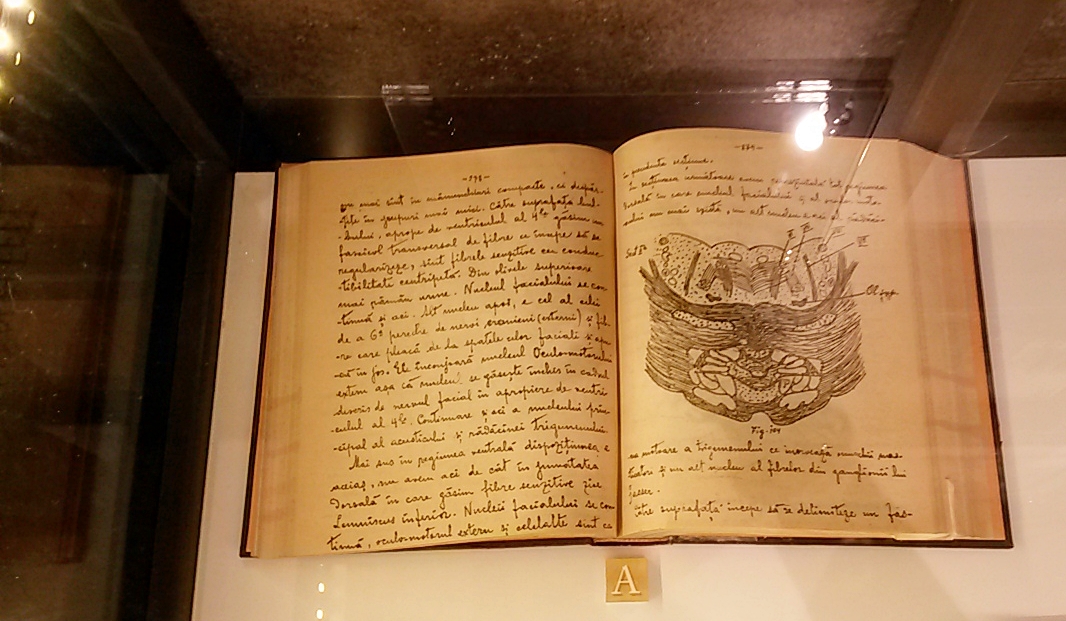 nu mai sunt în mănunchiuri compacte, ci despăr-
țite în grupuri mai mici. Către suprafața bul-
-bului, aproape de ventriculul al 4le găsim un
fascicol transversal de fibre ce începe să se
regularizeze, sunt fibrele senzitive cu conduc-
tibilitate centripetă. Din olivele superioare
mai rămân urme. Nucleul facialului se con-
-tinuă și aci. Alt nucleu apoi, e cel al celei
de a 6a perechi de nervi cranieni (externi) și fib-
-re care pleacă de la spatele celor faciali și
-că în jos. Ele înconjoară nucleul Oculomotorului
extern așa că nucleul se găsește închis în cadrul
descris de nervul facial în apropiere de ventri-
culul al 4le. Continuare și aci a nucleului prin-
-cipal al acusticului și rădăcinei trigemenului.
Mai sus în regiunea ventrală dispozițiunea e
aceiaș, nu avem aci de cât în jumătatea
Dorsală în care găsim fibre senzitive zise
Lemniscus inferior. Nucleii facialului se con-
tinuă, oculomotorul extern și celelalte sunt ca
în precedenta secțiune.
În secțiunea următoare avem regiunea
Dorsală în care nucleul facialului și al
nu mai există, un alt nucleu e aci al rădăci-
V
VI
VII
Ol. sup.
Fig. 104
nei motoare a trigemenului ce inervează mușchii mas-
ticatori și un alt nucleu al fibrelor din ganglionii lui
Gasser.
Către suprafață începe să se delimiteze un fas-
A